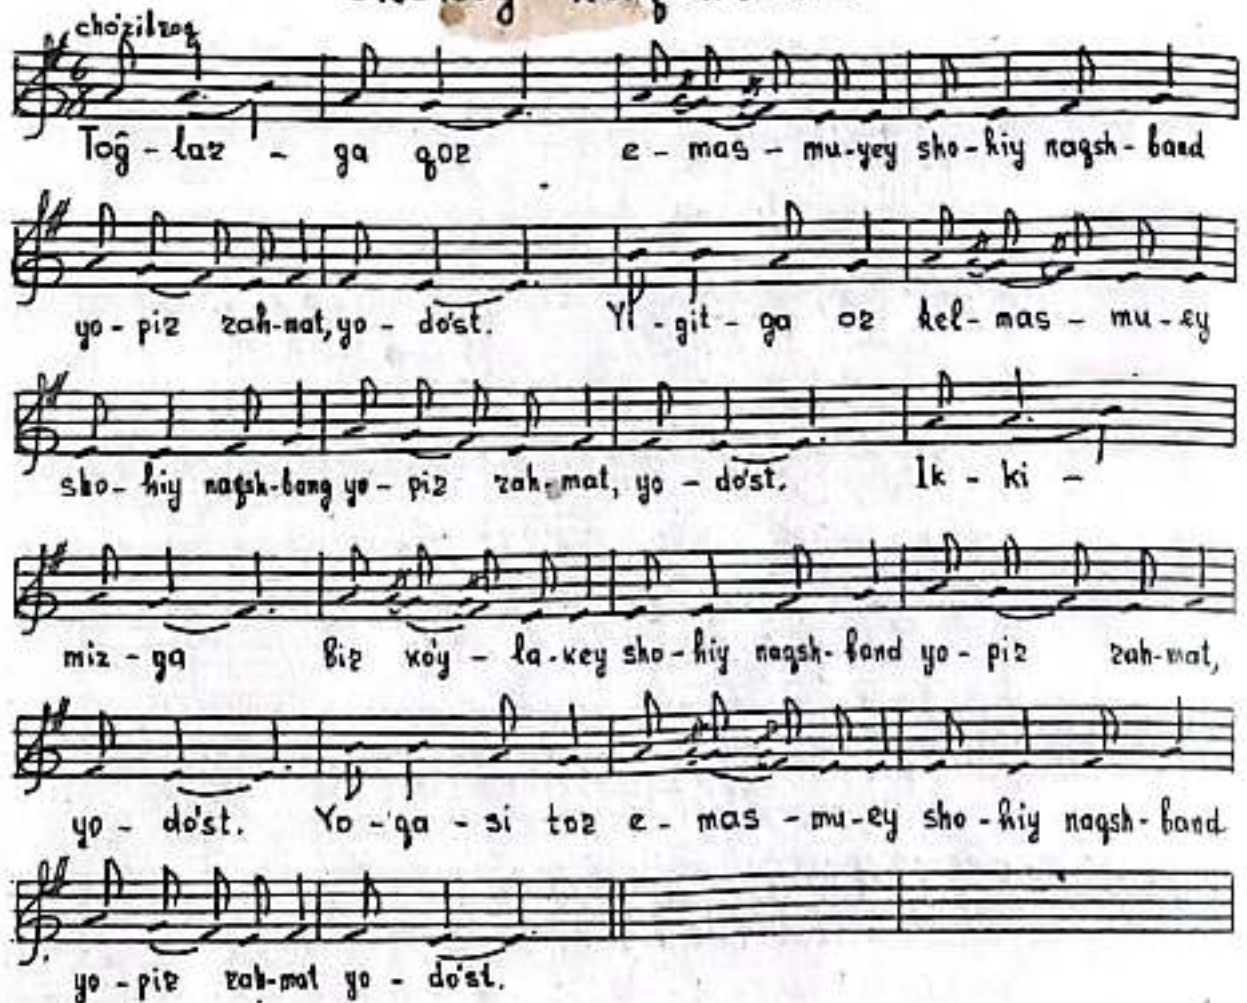 cho'zibroq
6
8
Toĝ - lar - ga qor e - mas - mu - yey sho - hiy naqsh - band
yo - pir rah - mat, yo - do'st. Yi - git - ga or kel - mas - mu - ey
sho - hiy naqsh - bang yo - pir rah - mat, yo - do'st. Ik - ki -
miz - ga bir koy - la - key sho - hiy naqsh - band yo - pir rah - mat,
yo - do'st. Yo - qa - si tor e - mas - mu - ey sho - hiy naqsh - band
yo - pir rah - mat yo - do'st.